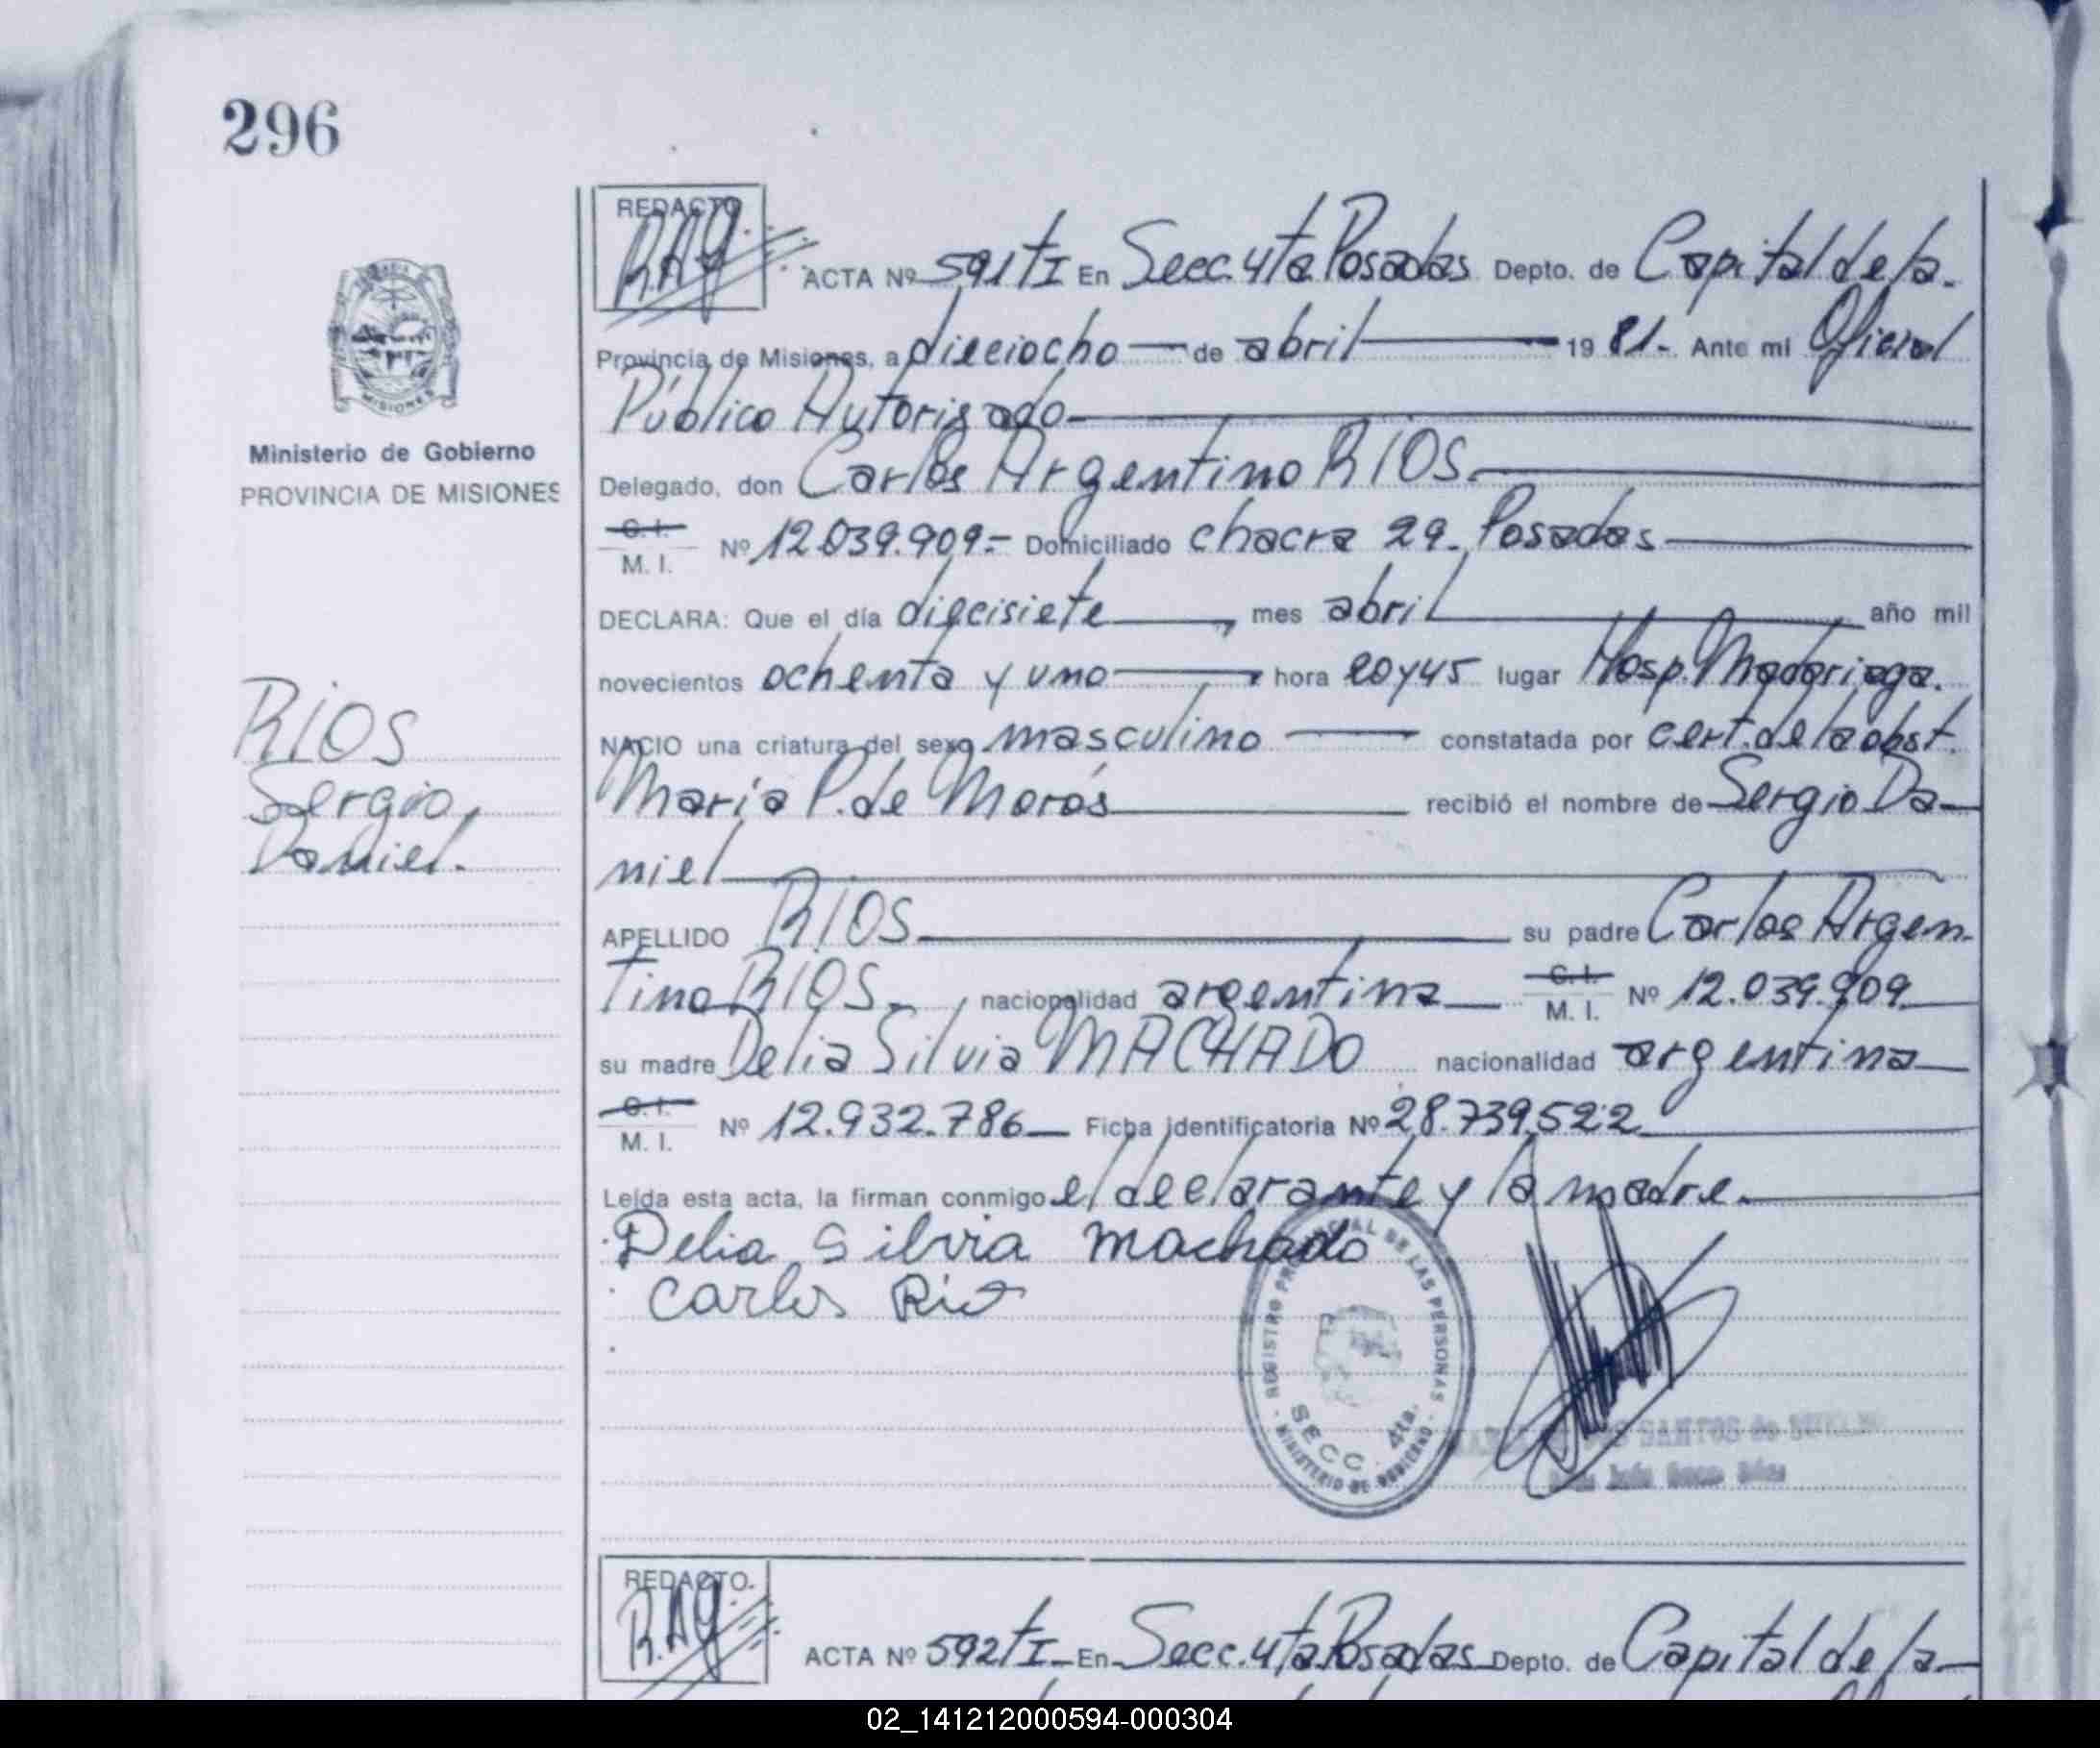 296
REDACTO
R.A.g.
ACTA Nº 591 tI En Secc. 4ta Posadas Depto. de Capital de la.
Provincia de Misiones, a dieciocho de abril 1981.- Ante mi Oficial
Público Autorizado
Delegado, don Carlos Argentino RIOS.
C.I.
M. I. Nº 12.039.909.- Domiciliado chacra 29. Posadas
DECLARA: Que el día diecisiete mes abril año mil
novecientos ochenta y uno hora 20 y 45 lugar Hosp. Madariaga.
NACIO una criatura del sexo masculino constatada por cert. de la obst.
María P. de Morós recibió el nombre de Sergio Da-
niel
APELLIDO RIOS su padre Carlos Argen-
tino RIOS.- , nacionalidad argentina C.I. M. I. Nº 12.039.909
su madre Delia Silvia MACHADO nacionalidad argentina
C.I.
M. I. Nº 12.932.786 Ficha identificatoria Nº 28.739.522
Leída esta acta, la firman conmigo el declarante y la madre.
Delia Silvia Machado
Carlos Rios
REGISTRO PROVINCIAL DE LAS PERSONAS
SECC. 4ta.
MINISTERIO DE GOBIERNO
SANTOS de
Ministerio de Gobierno
PROVINCIA DE MISIONES
MISIONES
RIOS
Sergio
Daniel.
REDACTO.
R.A.g.
ACTA Nº 592 tI En Secc. 4ta Posadas Depto. de Capital de la
02_141212000594-000304